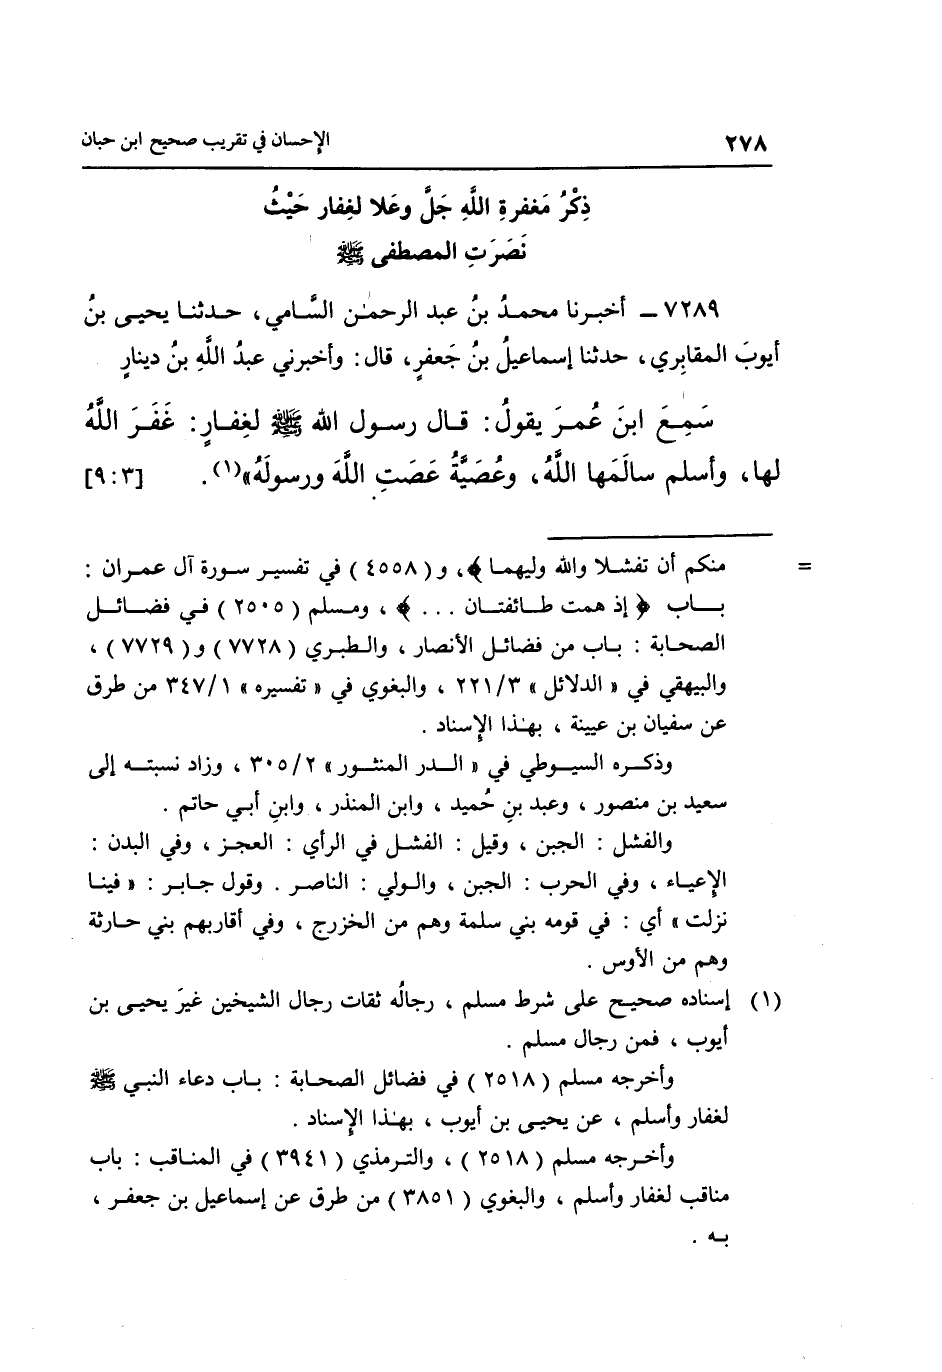 ٢٧٨ الإحسان في تقريب صحيح ابن حبان
ذِكْرُ مَغفرةِ اللَّهِ جَلَّ وعَلا لغِفار حَيْثُ
نَصَرَتِ المصطفى ﷺ
٧٢٨٩ ـ أخبرنا محمدُ بنُ عبد الرحمٰن السَّامي، حدثنا يحيى بنُ
أيوبَ المقابِري، حدثنا إسماعيلُ بنُ جَعفرٍ، قال: وأخبرني عبدُ اللَّهِ بنُ دينارٍ
سَمِعَ ابنَ عُمرَ يقولُ: قال رسول الله ﷺ لغِفارٍ: غَفَرَ اللَّهُ
لها، وأسلم سالَمَها اللَّهُ، وعُصَيَّةُ عَصَتِ اللَّهَ ورسولَهُ»(١). [٩:٣]
= منكم أن تفشلا والله وليهما ﴾، و( ٤٥٥٨ ) في تفسير سورة آل عمران :
باب ﴿ إذ همت طائفتان ... ﴾ ، ومسلم ( ٢٥٠٥ ) في فضائل
الصحابة : باب من فضائل الأنصار ، والطبري ( ٧٧٢٨ ) و( ٧٧٢٩ ) ،
والبيهقي في « الدلائل » ٢٢١/٣ ، والبغوي في « تفسيره » ٣٤٧/١ من طرق
عن سفيان بن عيينة ، بهٰذا الإِسناد .
وذكره السيوطي في « الدر المنثور » ٣٠٥/٢ ، وزاد نسبته إلى
سعيد بن منصور ، وعبد بنِ حُميد ، وابن المنذر ، وابنِ أبي حاتم .
والفشل : الجبن ، وقيل : الفشل في الرأي : العجز ، وفي البدن :
الإِعياء ، وفي الحرب : الجبن ، والولي : الناصر . وقول جابر : « فينا
نزلت » أي : في قومه بني سلمة وهم من الخزرج ، وفي أقاربهم بني حارثة
وهم من الأوس .
(١) إسناده صحيح على شرط مسلم ، رجالُه ثقات رجال الشيخين غيرَ يحيى بن
أيوب ، فمن رجال مسلم .
وأخرجه مسلم ( ٢٥١٨ ) في فضائل الصحابة : باب دعاء النبي ﷺ
لغفار وأسلم ، عن يحيى بن أيوب ، بهٰذا الإِسناد .
وأخرجه مسلم ( ٢٥١٨ ) ، والترمذي ( ٣٩٤١ ) في المناقب : باب
مناقب لغفار وأسلم ، والبغوي ( ٣٨٥١ ) من طرق عن إسماعيل بن جعفر ،
به .